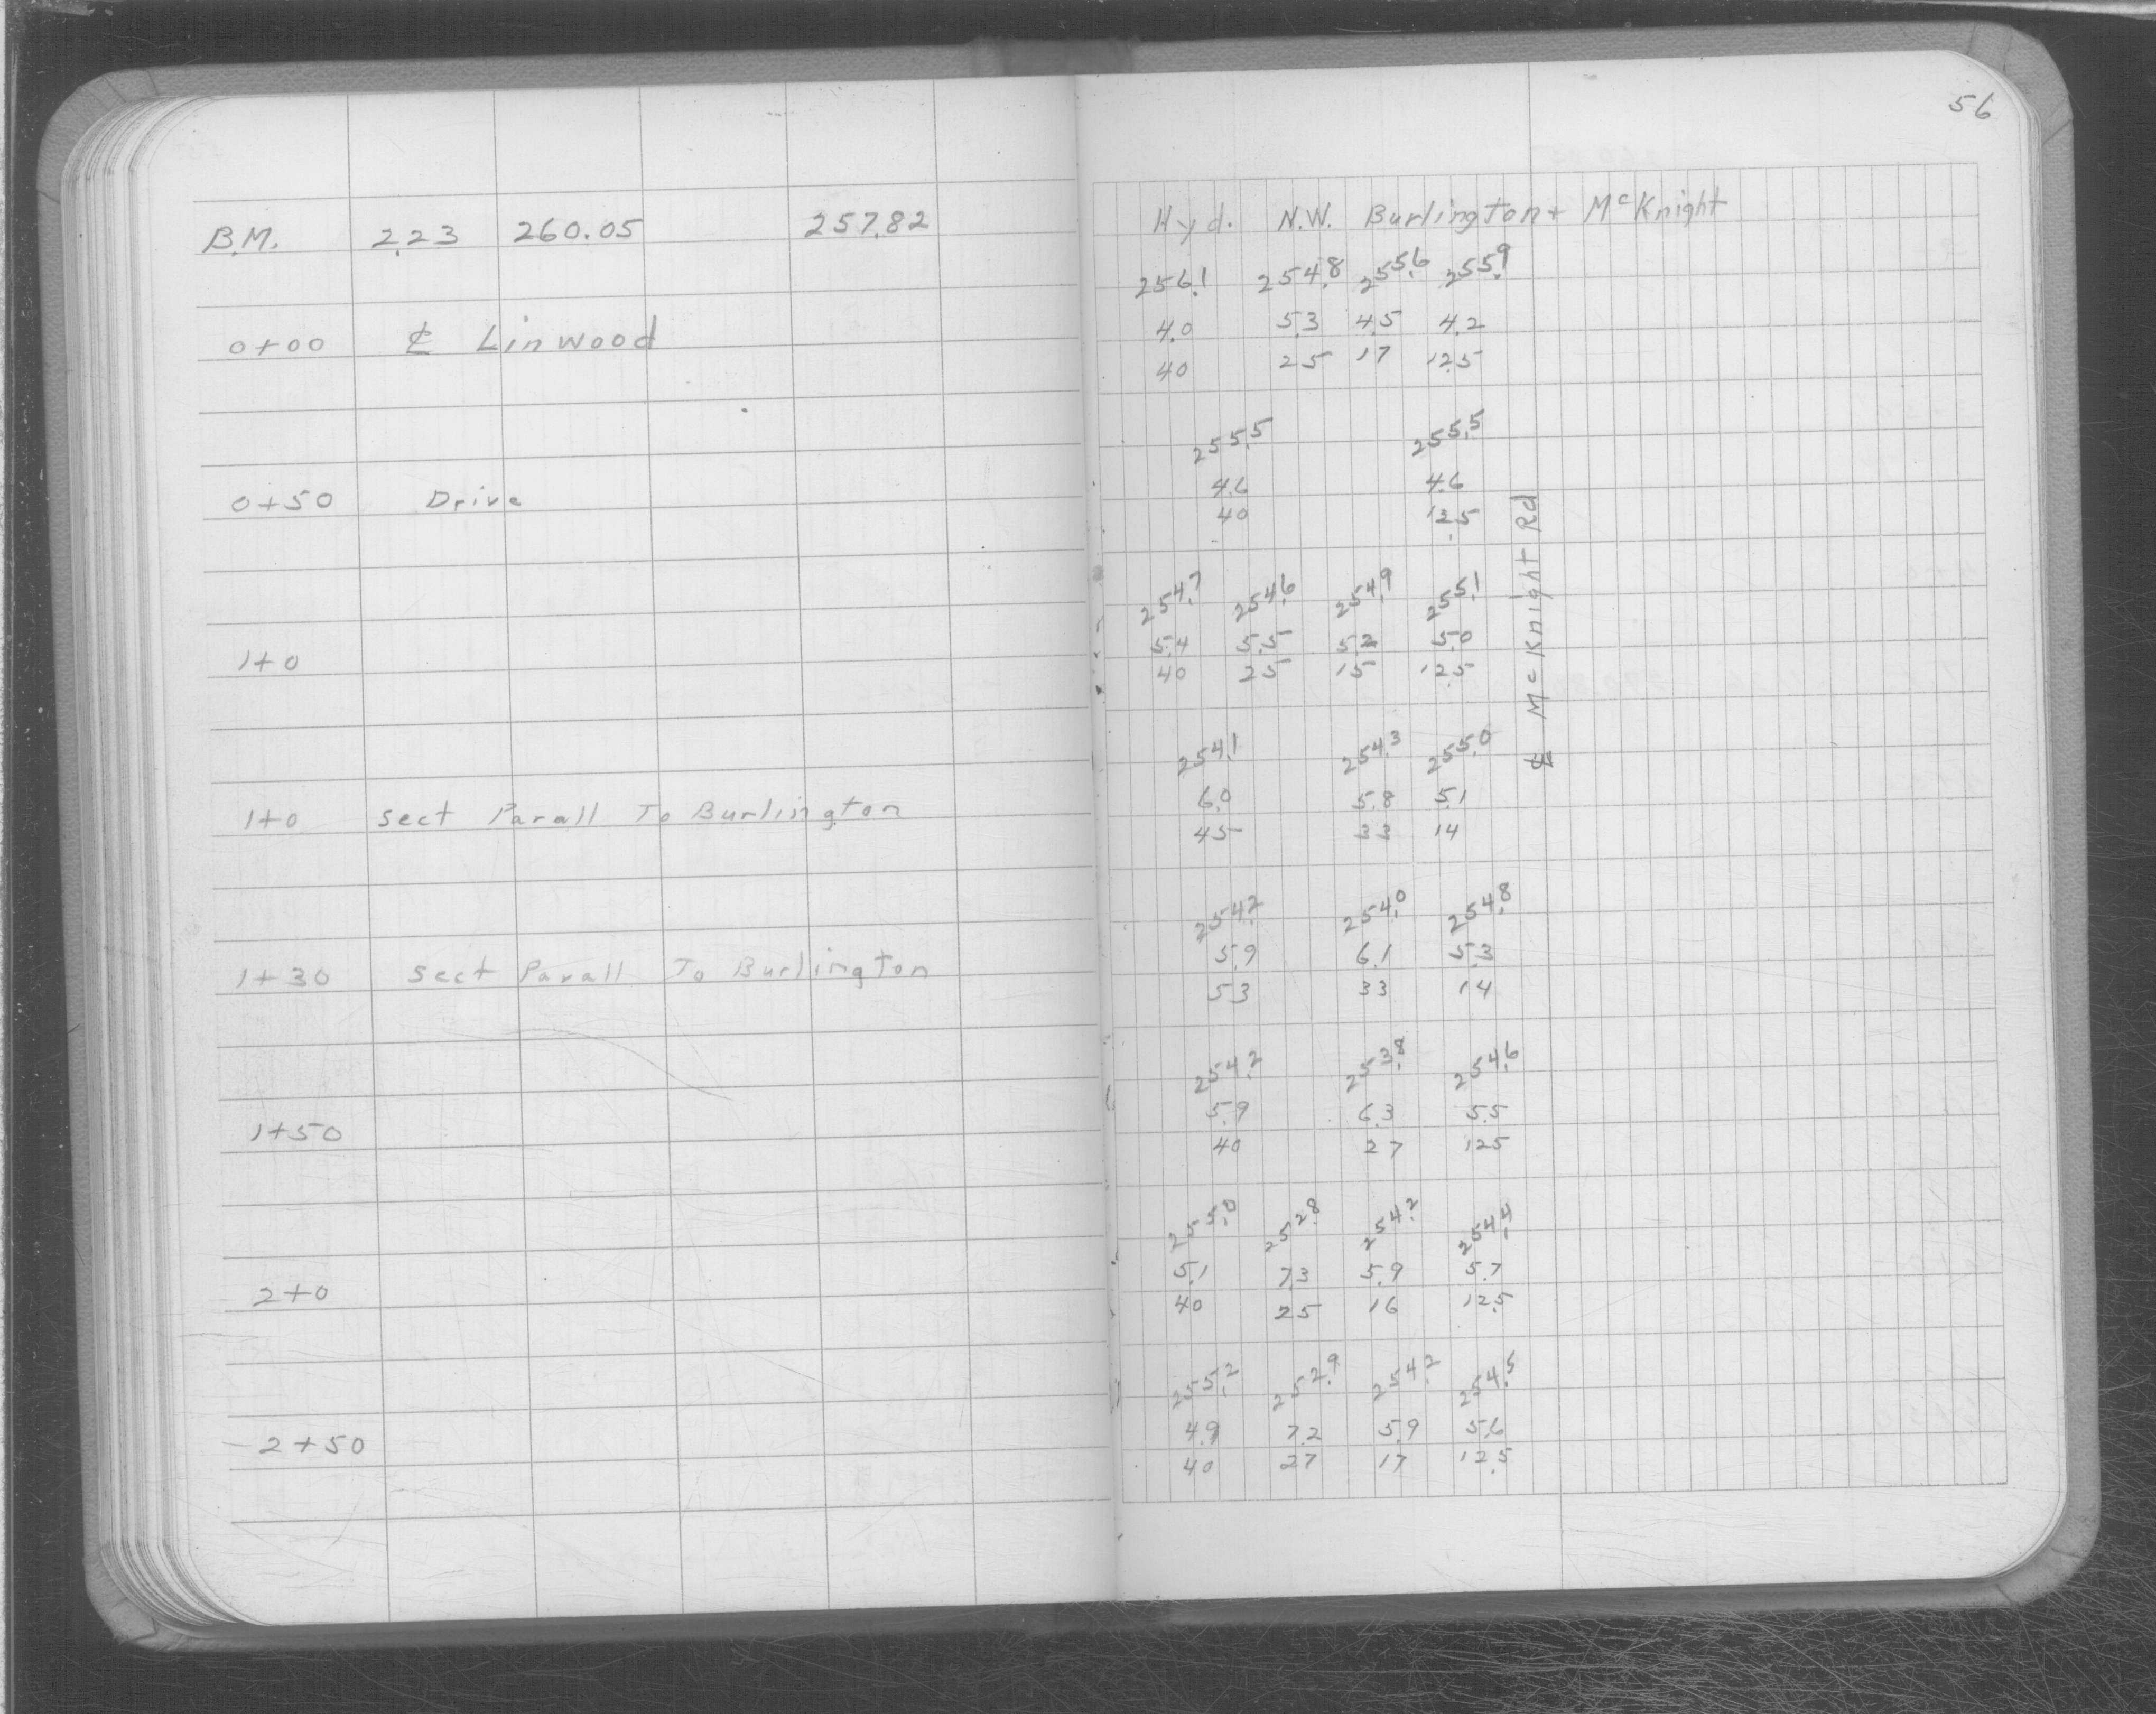 56
B.M. 2.23 260.05 257.82 Hyd. N.W. Burlington + McKnight
256.1 254.8 255.6 255.9
4.0 5.3 4.5 4.2
0+00 ℄ Linwood
40 25 17 12.5
255.5 255.5
4.6 4.6
0+50 Drive
40 12.5
℄ McKnight Rd
254.7 254.6 254.9 255.1
5.4 5.5 5.2 5.0
1+0
40 25 15 12.5
254.1 254.3 255.0
6.0 5.8 5.1
1+0 sect Parall To Burlington
45 33 14
254.2 254.0 254.8
5.9 6.1 5.3
1+30 sect Parall To Burlington
53 33 14
254.2 253.8 254.6
5.9 6.3 5.5
1+50
40 27 12.5
255.0 252.8 254.2 254.4
5.1 7.3 5.9 5.7
2+0
40 25 16 12.5
255.2 252.9 254.2 254.5
4.9 7.2 5.9 5.6
2+50
40 27 17 12.5